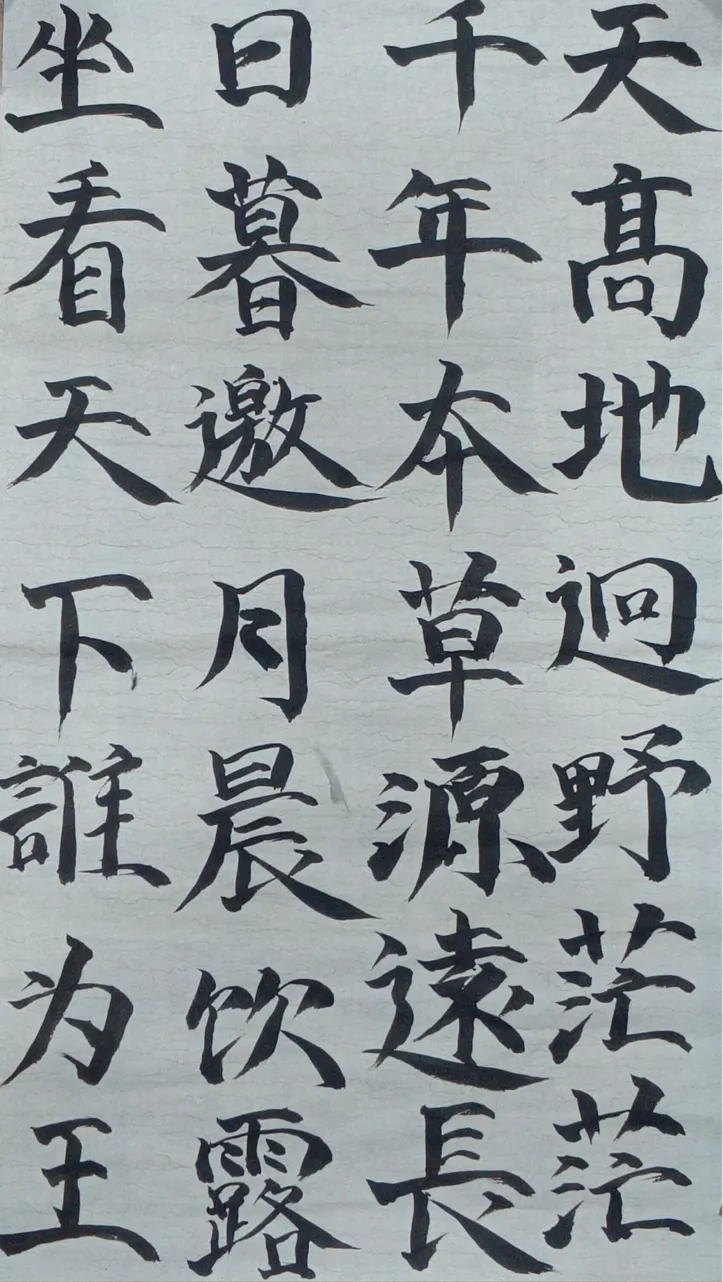 天髙地迥野茫茫
千年本草源遠長
日暮邀月晨饮露
坐看天下誰为王